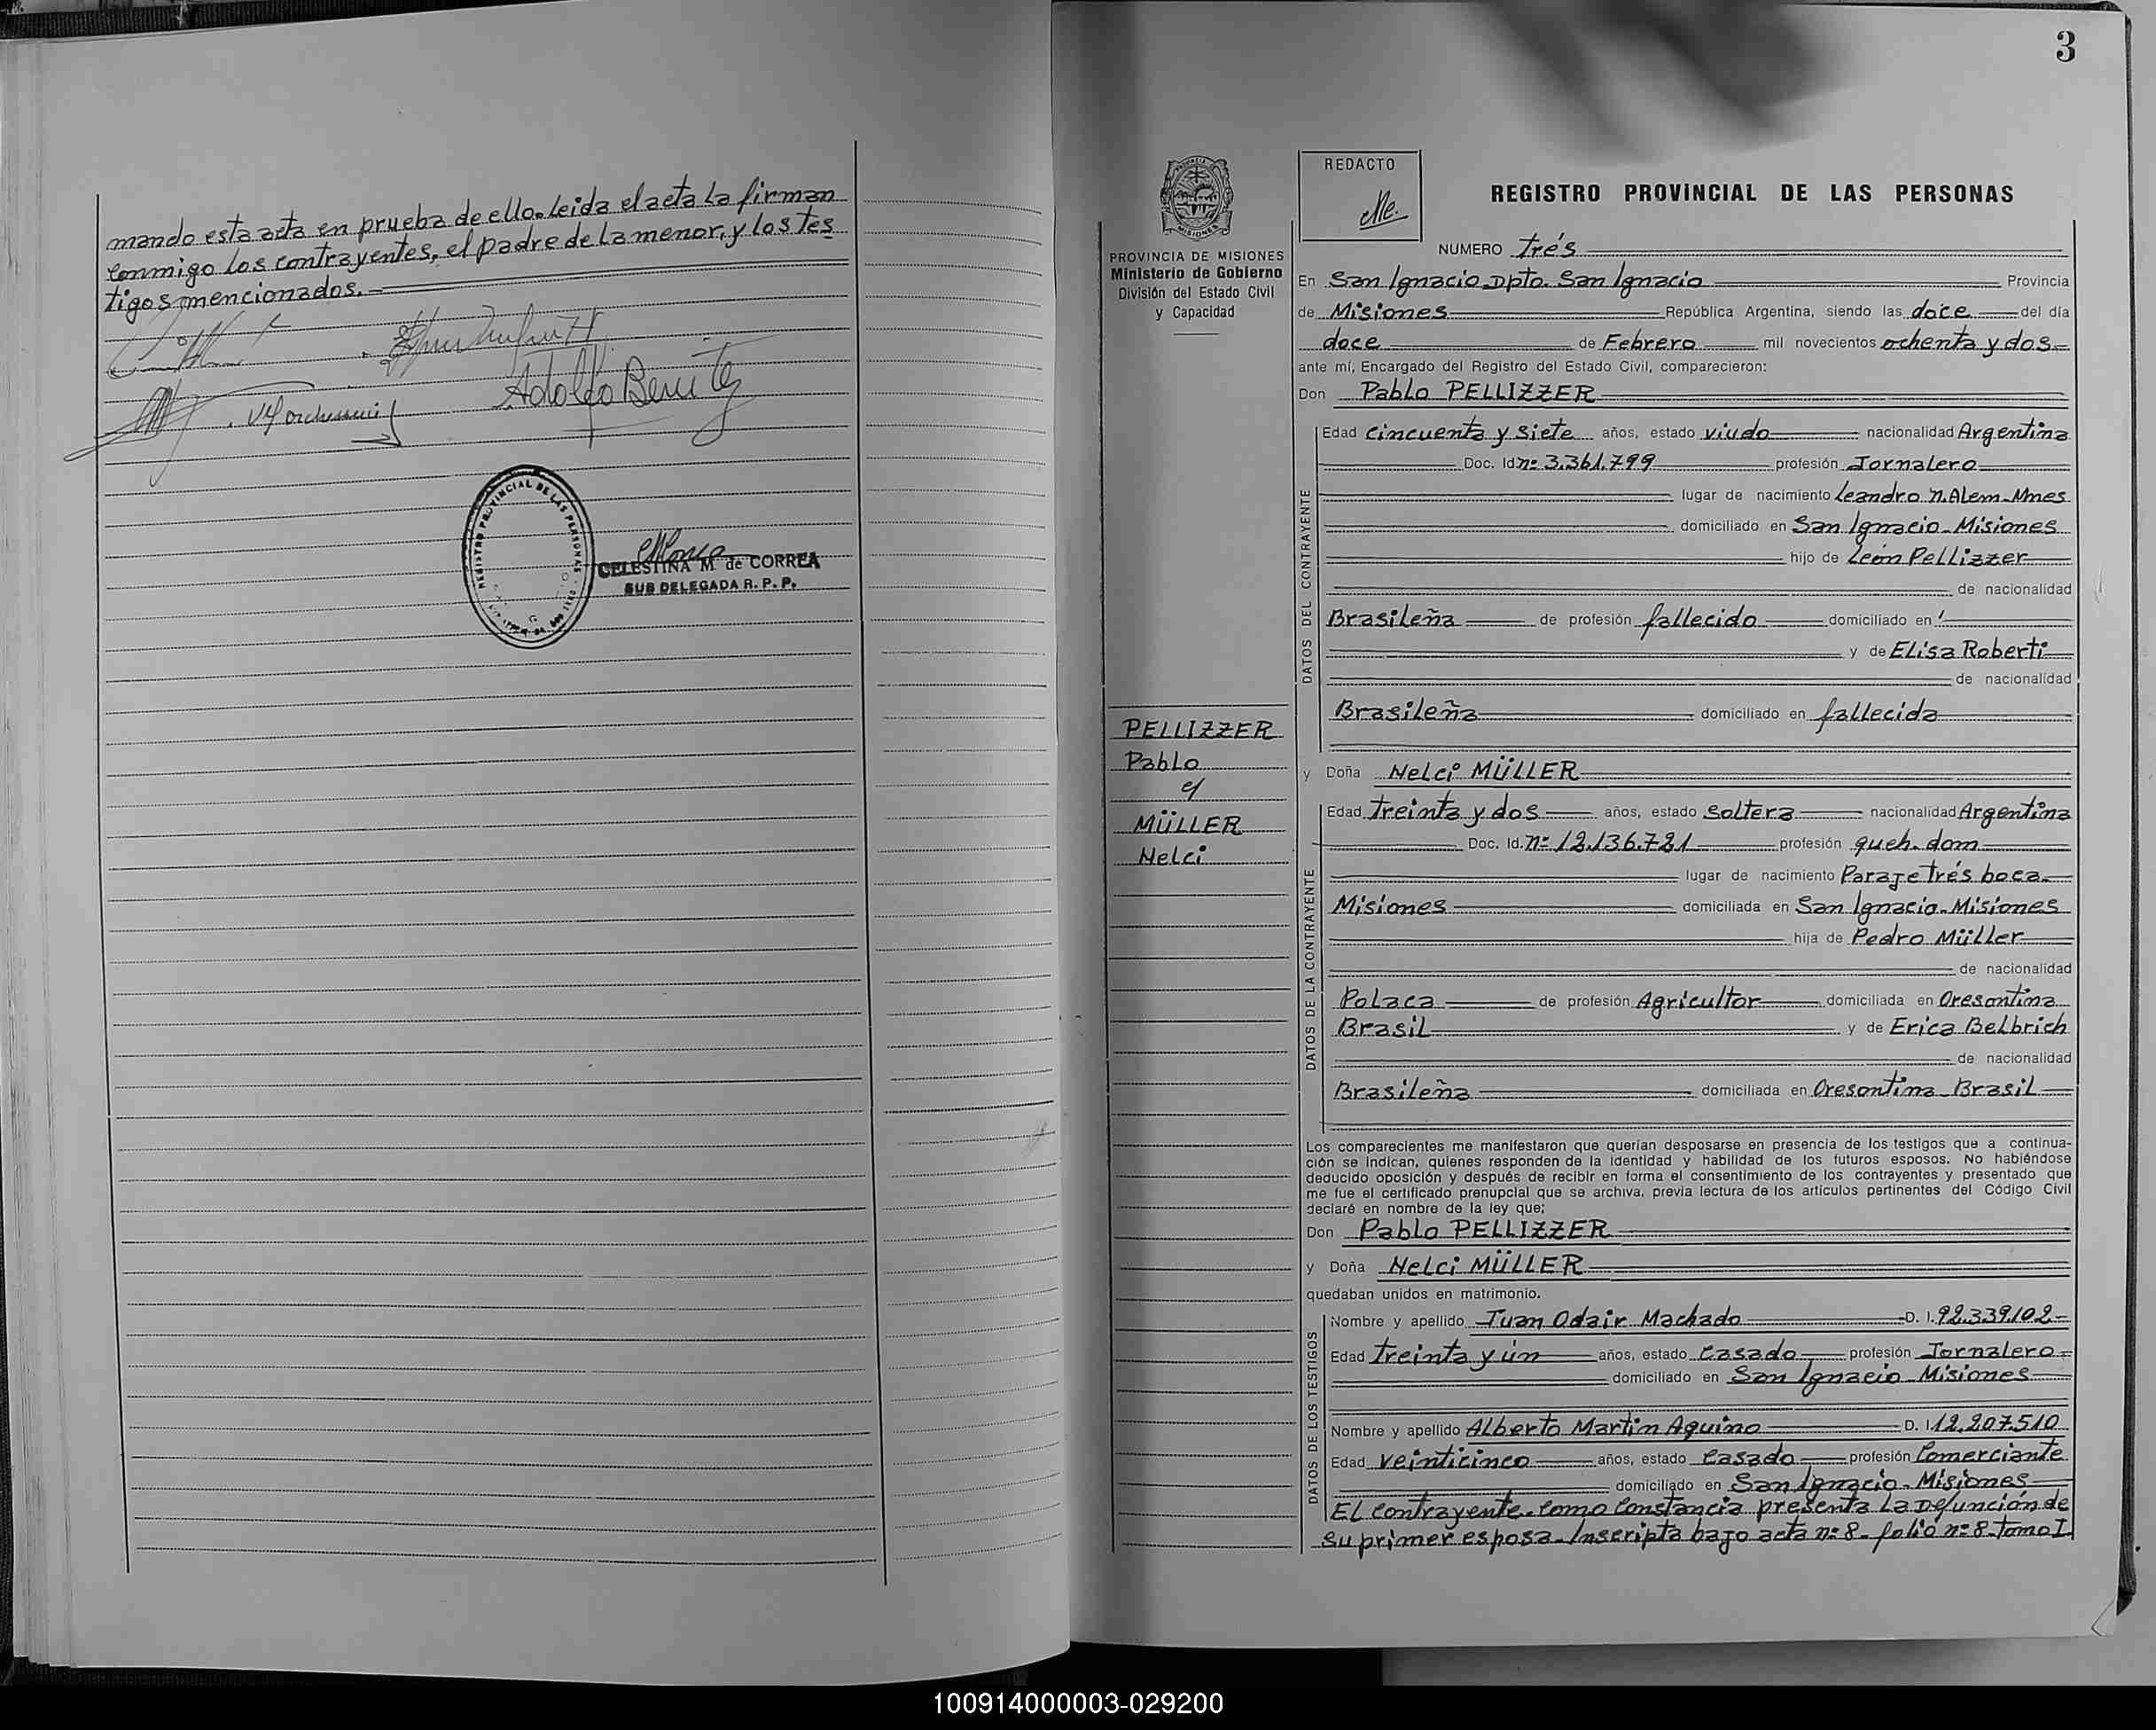 mando esta acta en prueba de ello. Leida el acta La firman
conmigo los contrayentes, el padre de la menor, y los tes
tigos mencionados.-
Adolfo Benitez
REGISTRO PROVINCIAL DE LAS PERSONAS
CELESTINA M de CORREA
SUB DELEGADA R. P. P.
3
PROVINCIA DE MISIONES
Ministerio de Gobierno
División del Estado Civil
y Capacidad
PELLIZZER
Pablo
y
MÜLLER
Nelci
REDACTO
REGISTRO PROVINCIAL DE LAS PERSONAS
NUMERO trés
En San Ignacio Dpto. San Ignacio Provincia
de Misiones República Argentina, siendo las doce del día
doce de Febrero mil novecientos ochenta y dos-
ante mí, Encargado del Registro del Estado Civil, comparecieron:
Don Pablo PELLIZZER
DATOS DEL CONTRAYENTE
Edad cincuenta y siete años, estado viudo nacionalidad Argentina
Doc. Id. nº 3.361.799 profesión Jornalero
lugar de nacimiento Leandro N. Alem-Mnes
domiciliado en San Ignacio-Misiones
hijo de León Pellizzer
de nacionalidad
Brasileña de profesión fallecido domiciliado en
y de Elisa Roberti
de nacionalidad
Brasileña domiciliado en fallecida
y Doña Nelci MÜLLER
DATOS DE LA CONTRAYENTE
Edad treinta y dos años, estado soltera nacionalidad Argentina
Doc. Id. nº 12.136.721 profesión queh. dom
lugar de nacimiento Paraje Trés boca-
Misiones domiciliada en San Ignacio-Misiones
hija de Pedro Müller
de nacionalidad
Polaca de profesión Agricultor domiciliada en Oresontina
Brasil y de Erica Belbrich
de nacionalidad
Brasileña domiciliada en Oresontina-Brasil
Los comparecientes me manifestaron que querían desposarse en presencia de los testigos que a continua-
ción se indican, quienes responden de la identidad y habilidad de los futuros esposos. No habiéndose
deducido oposición y después de recibir en forma el consentimiento de los contrayentes y presentado que
me fue el certificado prenupcial que se archiva, previa lectura de los artículos pertinentes del Código Civil
declaré en nombre de la ley que;
Don Pablo PELLIZZER
y Doña Nelci MÜLLER
quedaban unidos en matrimonio.
DATOS DE LOS TESTIGOS
Nombre y apellido Juan Odair Machado D. I. 92.339.102-
Edad treinta y ún años, estado Casado profesión Jornalero-
domiciliado en San Ignacio-Misiones
Nombre y apellido Alberto Martin Aquino D. I. 12.207.510
Edad veinticinco años, estado Casado profesión Comerciante
domiciliado en San Ignacio-Misiones
El contrayente-como constancia presenta La Defunción de
su primer esposa-Inscripta bajo acta nº 8-folio nº 8-tomo I
100914000003-029200